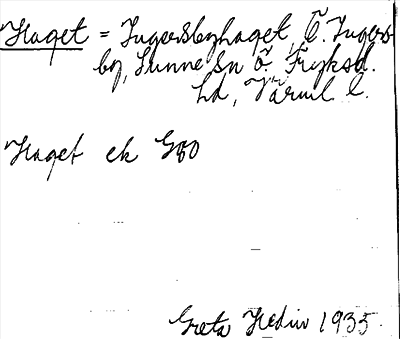 Haget = Ingersbyhaget, Ö. Ingers-
by, Sunne sn Ö. Fryksd.
hd, Värml. l.
Haget ek G80
Greta Hedin 1935